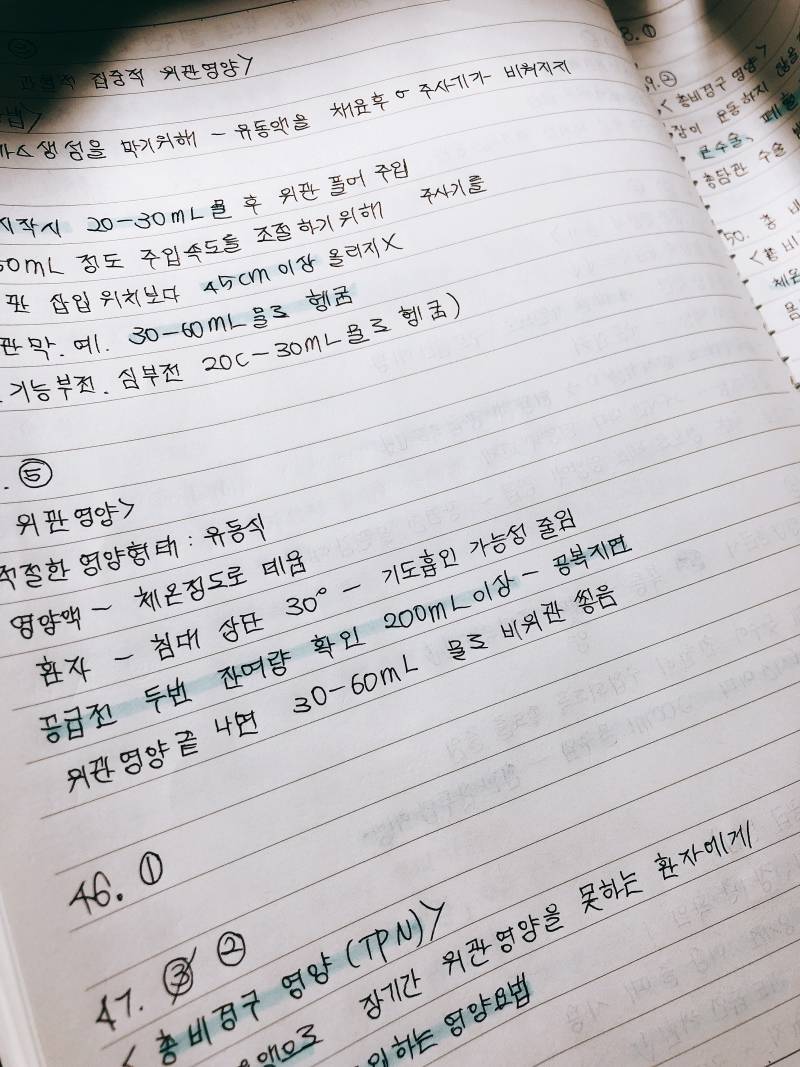 집중적 위관영양>
생성을 막기위해 - 유동액을 채운후 주사기가 비워지지
시작시 20-30mL물 후 위관 풀어 주입
50mL 정도 주입속도를 조절하기위해 주사기를
관 삽입위치보다 45cm이상 올리지X
관 막. 예. 30-60mL물로 헹굼
기능부전. 심부전 20C-30mL물로 헹굼)
. ⑤
위관영양>
적절한 영양형태 : 유동식
영양액 - 체온정도로 데움
환자 - 침대 상단 30° - 기도흡인 가능성 줄임
공급전 두번 잔여량 확인 200mL이상 - 공복지연
위관영양끝 나면 30-60mL 물로 비위관 씻음
46. ①
47. ③ ②
<총비경구 영양 (TPN)>
장기간 위관영양을 못하는 환자에게
하는 영양요법
8. ①
9. ②
<총비경구 영양>
장이 운동하지 않을
큰수술,
총담관 수술
50. 총
<총비
체온